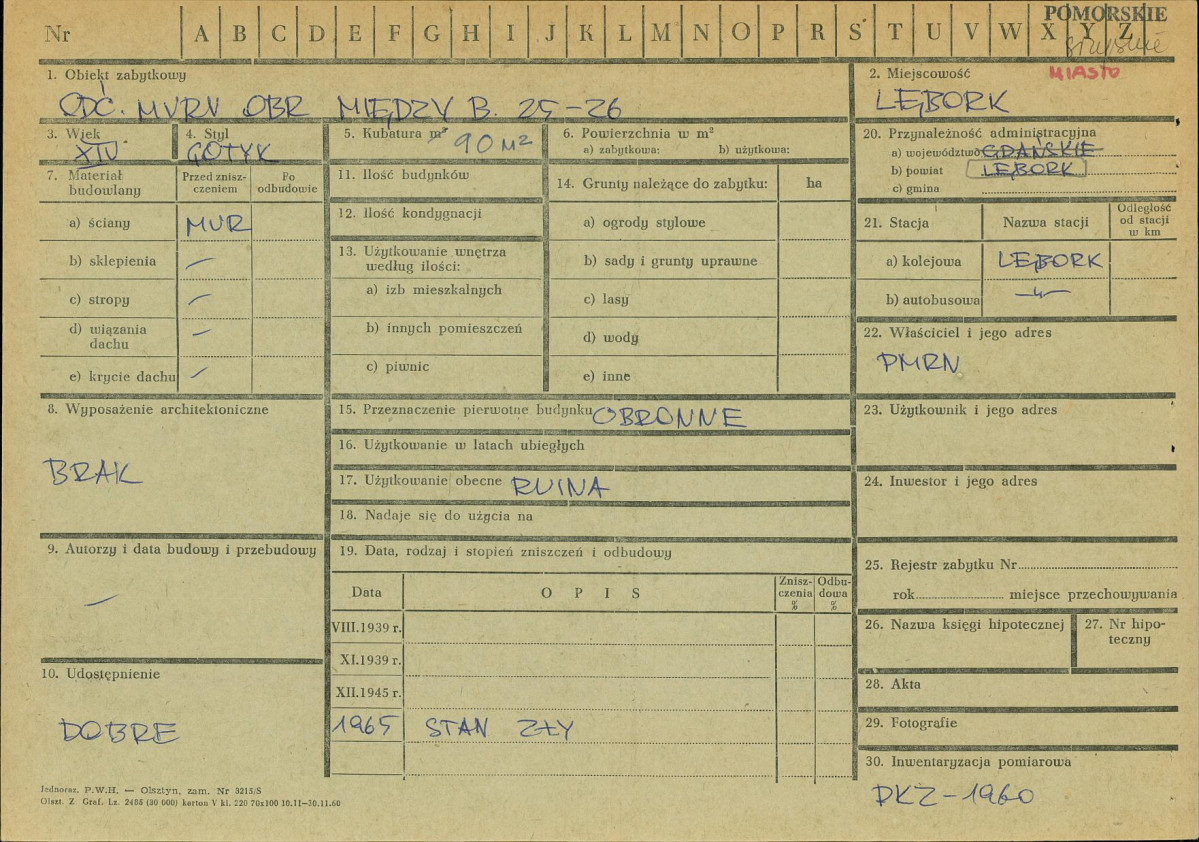 POMORSKIE
Nr A B C D E F G H I J K L M N O P R S T U V W X Y Z
MIASTO
1. Obiekt zabytkowy
ODC. MURU OBR MIĘDZY B. 25-26
2. Miejscowość
LĘBORK
3. Wiek
XIV
4. Styl
GOTYK
5. Kubatura m³
90 M2
6. Powierzchnia w m²
a) zabytkowa: b) użytkowa:
20. Przynależność administracyjna
a) województwo GDAŃSKIE
b) powiat LĘBORK
c) gmina
7. Materiał budowlany
Przed zniszczeniem
Po odbudowie
a) ściany MUR
b) sklepienia —
c) stropy —
d) wiązania dachu —
e) krycie dachu —
11. Ilość budynków
12. Ilość kondygnacji
13. Użytkowanie wnętrza według ilości:
a) izb mieszkalnych
b) innych pomieszczeń
c) piwnic
14. Grunty należące do zabytku: ha
a) ogrody stylowe
b) sady i grunty uprawne
c) lasy
d) wody
e) inne
21. Stacja
Nazwa stacji
Odległość od stacji w km
a) kolejowa LĘBORK
b) autobusowa —"—
22. Właściciel i jego adres
PMRN
8. Wyposażenie architektoniczne
BRAK
15. Przeznaczenie pierwotne budynku OBRONNE
16. Użytkowanie w latach ubiegłych
17. Użytkowanie obecne RUINA
18. Nadaje się do użycia na
23. Użytkownik i jego adres
24. Inwestor i jego adres
9. Autorzy i data budowy i przebudowy
—
10. Udostępnienie
DOBRE
19. Data, rodzaj i stopień zniszczeń i odbudowy
Data
OPIS
Zniszczenia %
Odbudowa %
VIII.1939 r.
XI.1939 r.
XII.1945 r.
1965 STAN ZŁY
25. Rejestr zabytku Nr
rok miejsce przechowywania
26. Nazwa księgi hipotecznej
27. Nr hipoteczny
28. Akta
29. Fotografie
30. Inwentaryzacja pomiarowa
PKZ - 1960
Jednoraz. P.W.H. — Olsztyn, zam. Nr 3215/S
Olszt. Z. Graf. Lz. 2485 (30 000) karton V kl. 220 70x100 10.11-30.11.60